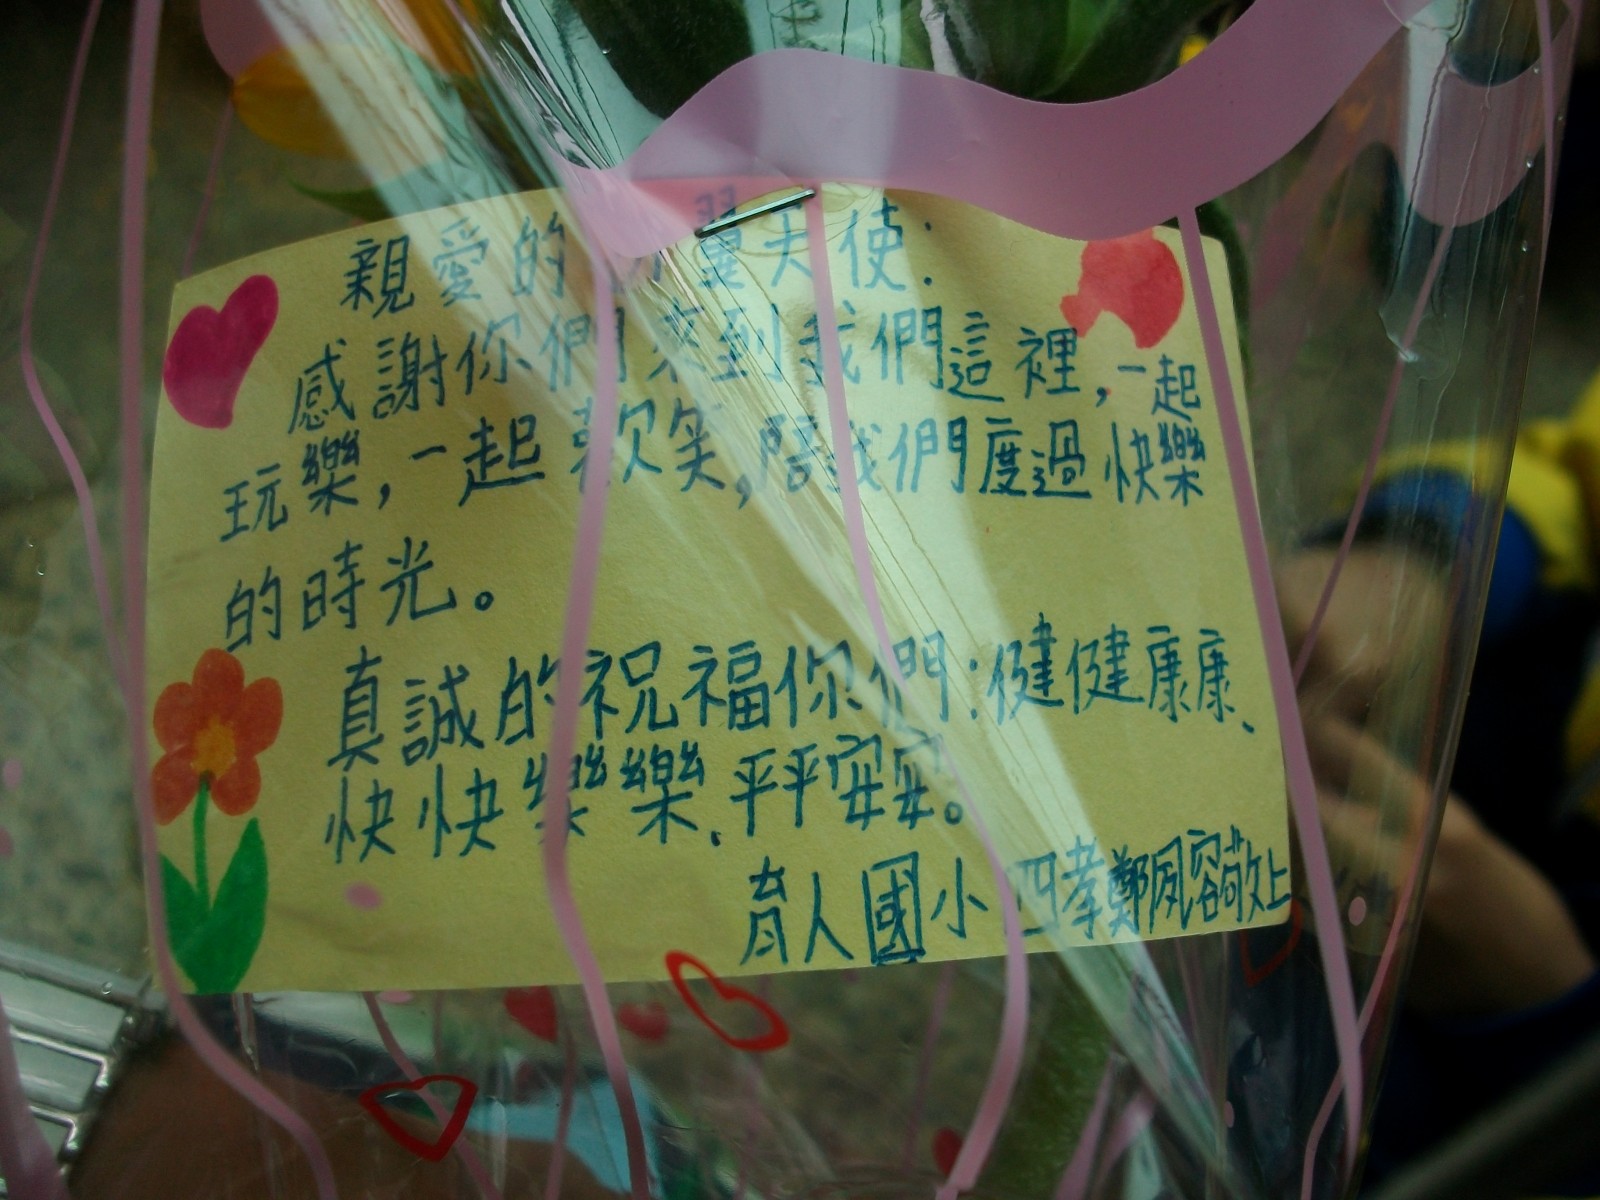 親愛的 翼天使：
感謝你們來到我們這裡，一起
玩樂，一起歡笑，陪我們度過快樂
的時光。
真誠的祝福你們：健健康康、
快快樂樂、平平安安。
育人國小 四孝鄭夙容敬上